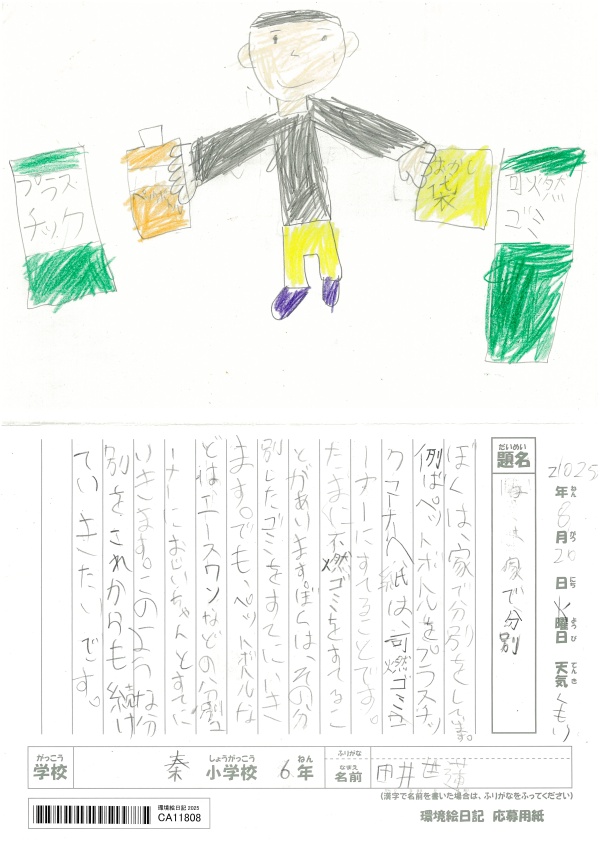 プラス
チック
おかし
袋
可燃
ゴミ
2025年8月20日 曜日 天気 くもり
ねん がつ にち ようび てんき
だいめい
題名
家で分別
ぼくは、家で分別をしてます。
例ばペットボトルをプラスチッ
クコーナーへ、紙は、可燃ゴミコ
ーナーにすてることです。
たまに不燃ゴミをすてるこ
とがあります。ぼくは、その分
別したゴミをすてにいき
ます。でも、ペットボトルな
どは、エースワンなどの分別コ
ーナーにおじいちゃんとすてに
いきます。このような分
別をこれからも続け
ていきたいです。
がっこう
学校
秦
しょうがっこう
小学校
6
ねん
年
ふりがな
なまえ
名前
田井 世蓮
(漢字で名前を書いた場合は、ふりがなをふってください)
環境絵日記 2025
CA11808
環境絵日記 応募用紙